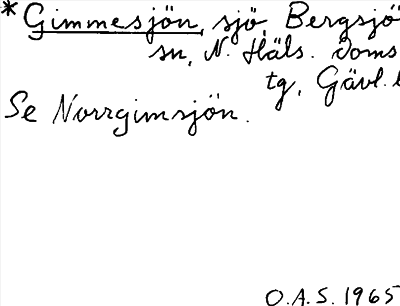 *Gimmesjön, sjö, Bergsjö
sn, N. Häls. doms
tg, Gävl. l
Se Norrgimsjön.
O.A.S. 1965